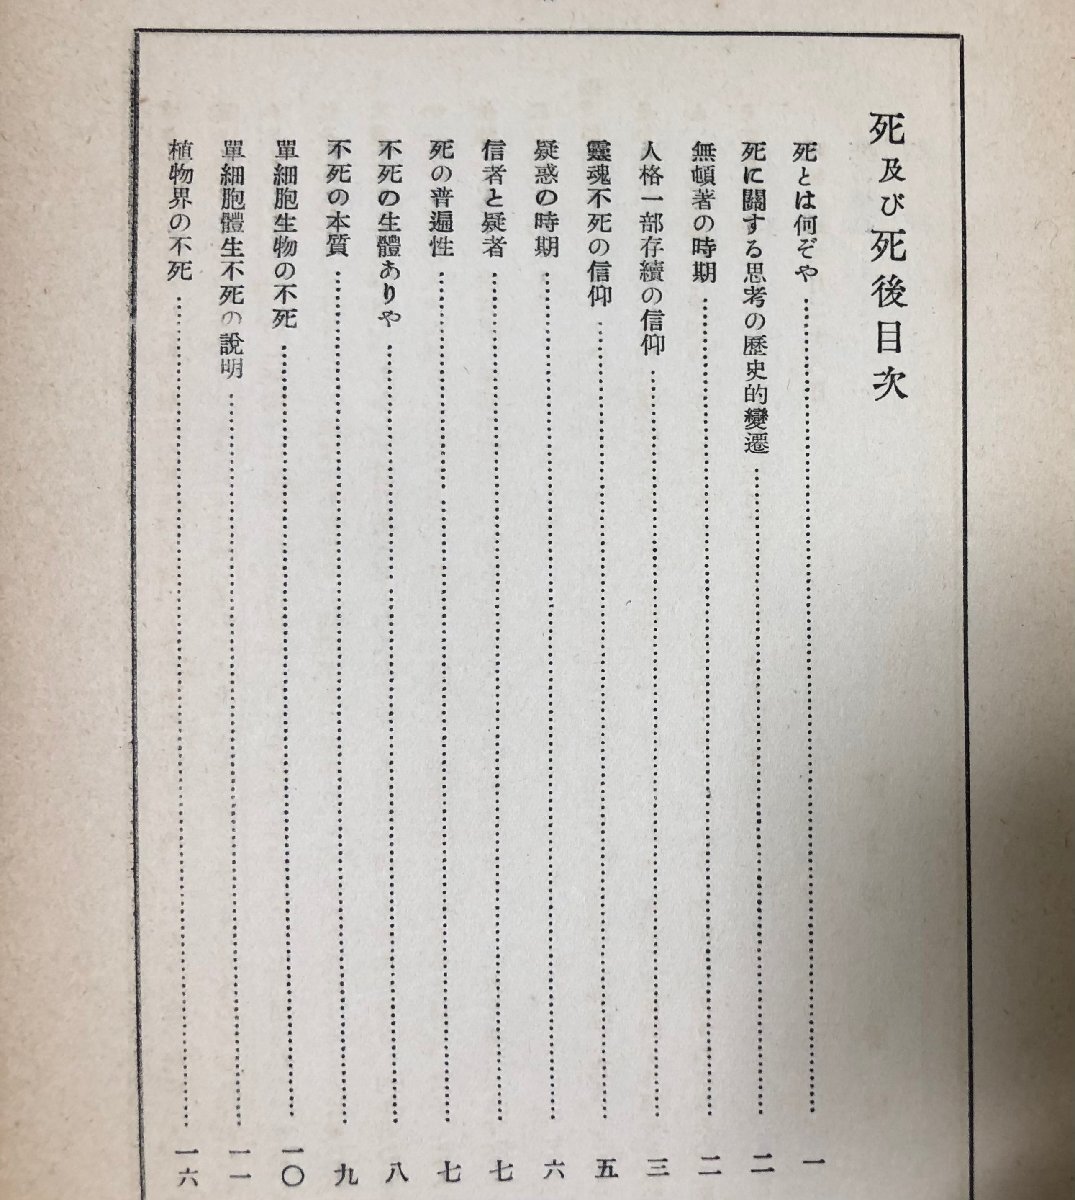 死及び死後目次
死とは何ぞや……一
死に關する思考の歷史的變遷……二
無頓著の時期……二
人格一部存續の信仰……三
靈魂不死の信仰……五
疑惑の時期……六
信者と疑者……七
死の普遍性……七
不死の生體ありや……八
不死の本質……九
單細胞生物の不死……一〇
單細胞體生不死の說明……一一
植物界の不死……一六